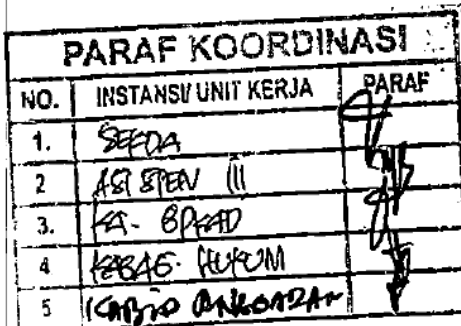 PARAF KOORDINASI
NO. INSTANSI/ UNIT KERJA PARAF
1. SEKDA
2 ASISTEN III
3. KA. BPKAD
4 KABAG. HUKUM
5 KABID